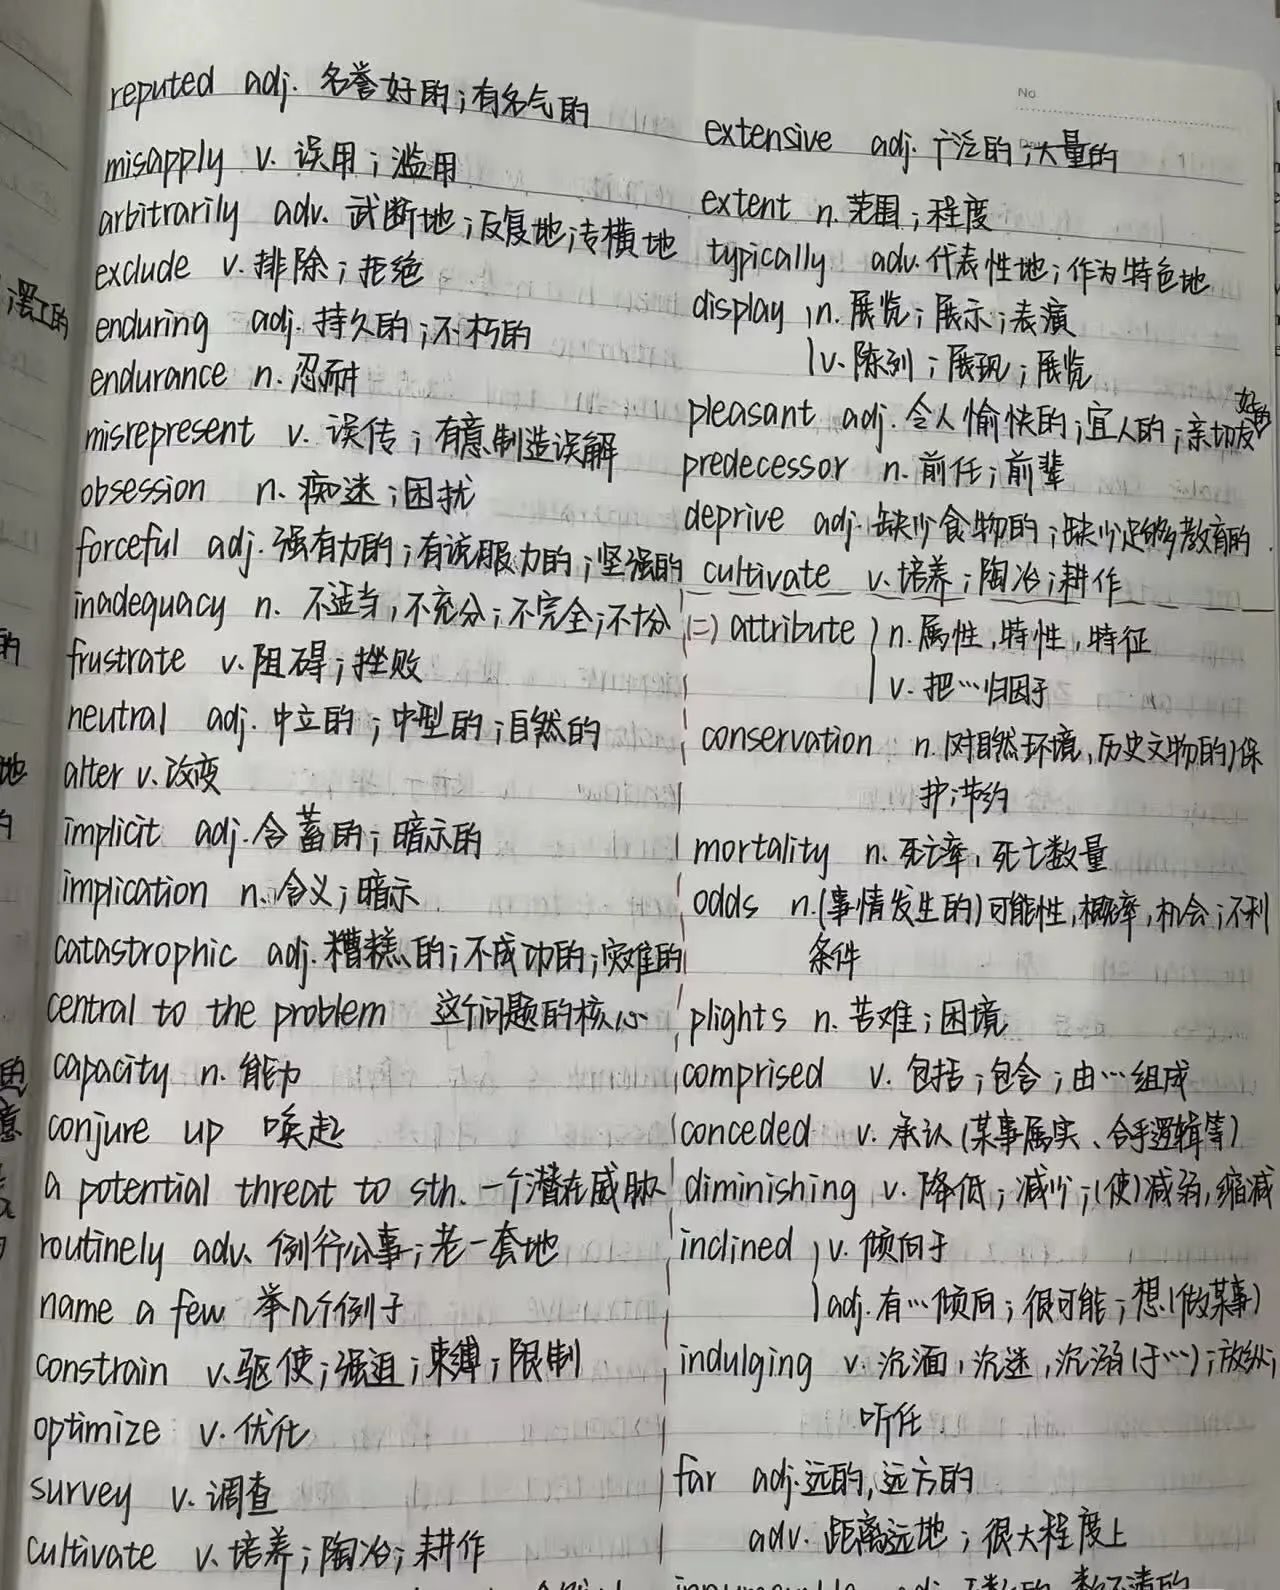 reputed adj. 名誉好的；有名气的
misapply v. 误用；滥用
arbitrarily adv. 武断地；反复地；专横地
exclude v. 排除；拒绝
enduring adj. 持久的；不朽的
endurance n. 忍耐
misrepresent v. 误传；有意制造误解
obsession n. 痴迷；困扰
forceful adj. 强有力的；有说服力的；坚强的
inadequacy n. 不适当，不充分；不完全；不十分
frustrate v. 阻碍；挫败
neutral adj. 中立的；中型的；自然的
alter v. 改变
implicit adj. 含蓄的；暗示的
implication n. 含义；暗示
catastrophic adj. 糟糕的；不成功的；灾难的
central to the problem 这个问题的核心
capacity n. 能力
conjure up 唤起
a potential threat to sth. 一个潜在威胁
routinely adv. 例行公事；老一套地
name a few 举几个例子
constrain v. 驱使；强迫；束缚；限制
optimize v. 优化
survey v. 调查
cultivate v. 培养；陶冶；耕作
No
extensive adj. 广泛的；大量的
extent n. 范围；程度
typically adv. 代表性地；作为特色地
display n. 展览；展示；表演
v. 陈列；展现；展览
pleasant adj. 令人愉快的；宜人的；亲切友好的
predecessor n. 前任；前辈
deprive adj. 缺少食物的；缺少足够教育的
cultivate v. 培养；陶冶；耕作
(二) attribute n. 属性，特性，特征
v. 把…归因于
conservation n. (对自然环境，历史文物的)保
护；节约
mortality n. 死亡率，死亡数量
odds n. (事情发生的)可能性，概率，机会；不利
条件
plights n. 苦难；困境
comprised v. 包括；包含；由…组成
conceded v. 承认(某事属实、合乎逻辑等)
diminishing v. 降低；减少；(使)减弱，缩减
inclined v. 倾向于
adj. 有…倾向；很可能；想(做某事)
indulging v. 沉湎，沉迷，沉溺(于…)；放纵；
听任
far adj. 远的，远方的
adv. 距离远地；很大程度上